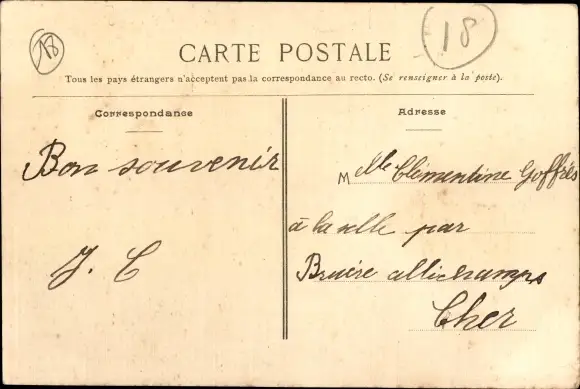 18
18
CARTE POSTALE
Tous les pays étrangers n'acceptent pas la correspondance au recto. (Se renseigner à la poste).
Correspondance
Bon souvenir
J. C
Adresse
M elle Clémentine Goffrés
à la selle par
Bruère allichamps
Cher